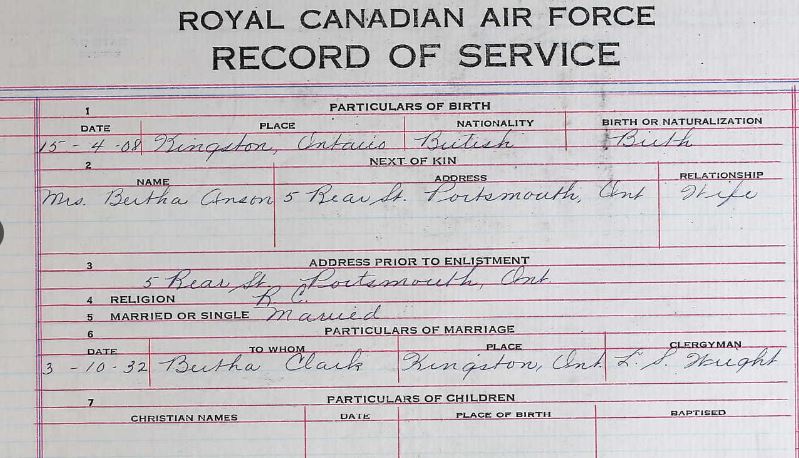 ROYAL CANADIAN AIR FORCE
RECORD OF SERVICE
1 PARTICULARS OF BIRTH
DATE PLACE NATIONALITY BIRTH OR NATURALIZATION
15 - 4 - 08 Kingston, Ontario British Birth
2 NEXT OF KIN
NAME ADDRESS RELATIONSHIP
Mrs. Bertha Anson 5 Rear St. Portsmouth, Ont Wife
3 ADDRESS PRIOR TO ENLISTMENT
5 Rear St. Portsmouth, Ont.
4 RELIGION R.C.
5 MARRIED OR SINGLE Married
6 PARTICULARS OF MARRIAGE
DATE TO WHOM PLACE CLERGYMAN
3 - 10 - 32 Bertha Clark Kingston, Ont. L. S. Wright
7 PARTICULARS OF CHILDREN
CHRISTIAN NAMES DATE PLACE OF BIRTH BAPTISED